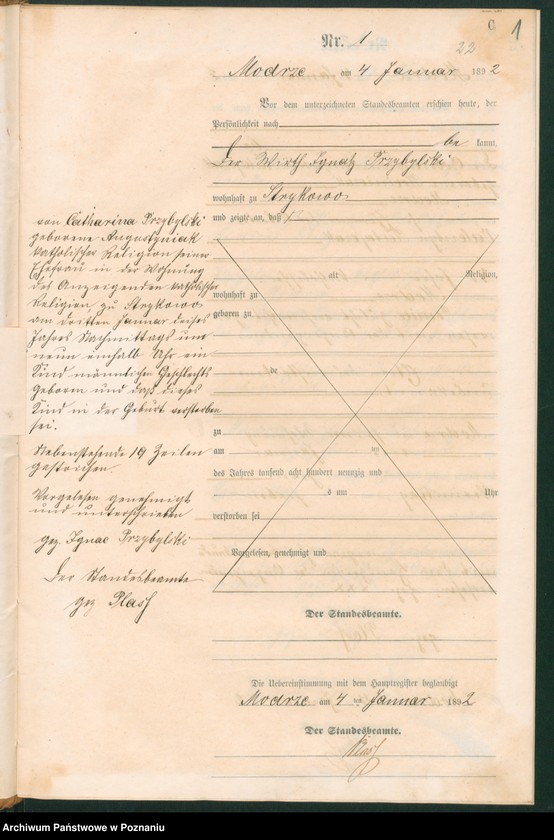 C. 1
Nr. 1
22
Modrze am 4 Januar 1892
Vor dem unterzeichneten Standesbeamten erschien heute, der
Persönlichkeit nach
be kannt,
der Wirth Ignatz Przybylski
wohnhaft zu Strykowo
und zeigte an, daß
von Catharina Przybylski
geborene Augustyniak
katholischer Religion seiner
Ehefrau in der Wohnung
des Anzeigenden katholischer
Religion, zu Strykowo
am dritten Januar dieses
Jahres Nachmittags um
neun einhalb Uhr ein
Kind männlichen Geschlechts
geboren und daß dieses
Kind in der Geburt verstorben
sei.
Nebenstehende 19 Zeilen
gestrichen.
Vorgelesen genehmigt
und unterschrieben
gez. Ignac Przybylski
Der Standesbeamte
gez Plash
alt Religion,
wohnhaft zu
geboren zu
de
zu
am ten
des Jahres tausend acht hundert neunzig und
s um Uhr
verstorben sei
Vorgelesen, genehmigt und
Der Standesbeamte.
Die Uebereinstimmung mit dem Hauptregister beglaubigt
Modrze am 4 ten Januar 1892
Der Standesbeamte.
Archiwum Państwowe w Poznaniu